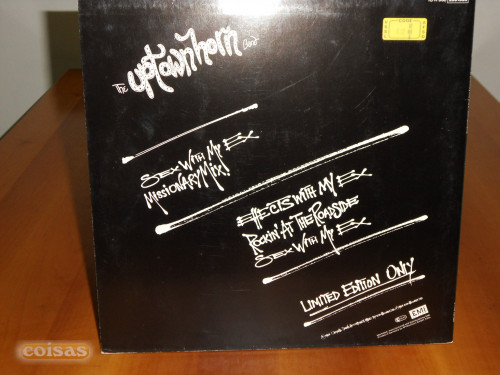 The uptownhorn Band
Sex With My Ex
Missionary Mix!
Effects With My Ex
Rockin' At The Roadside
Sex With My Ex
Limited Edition Only
EMI
coisas